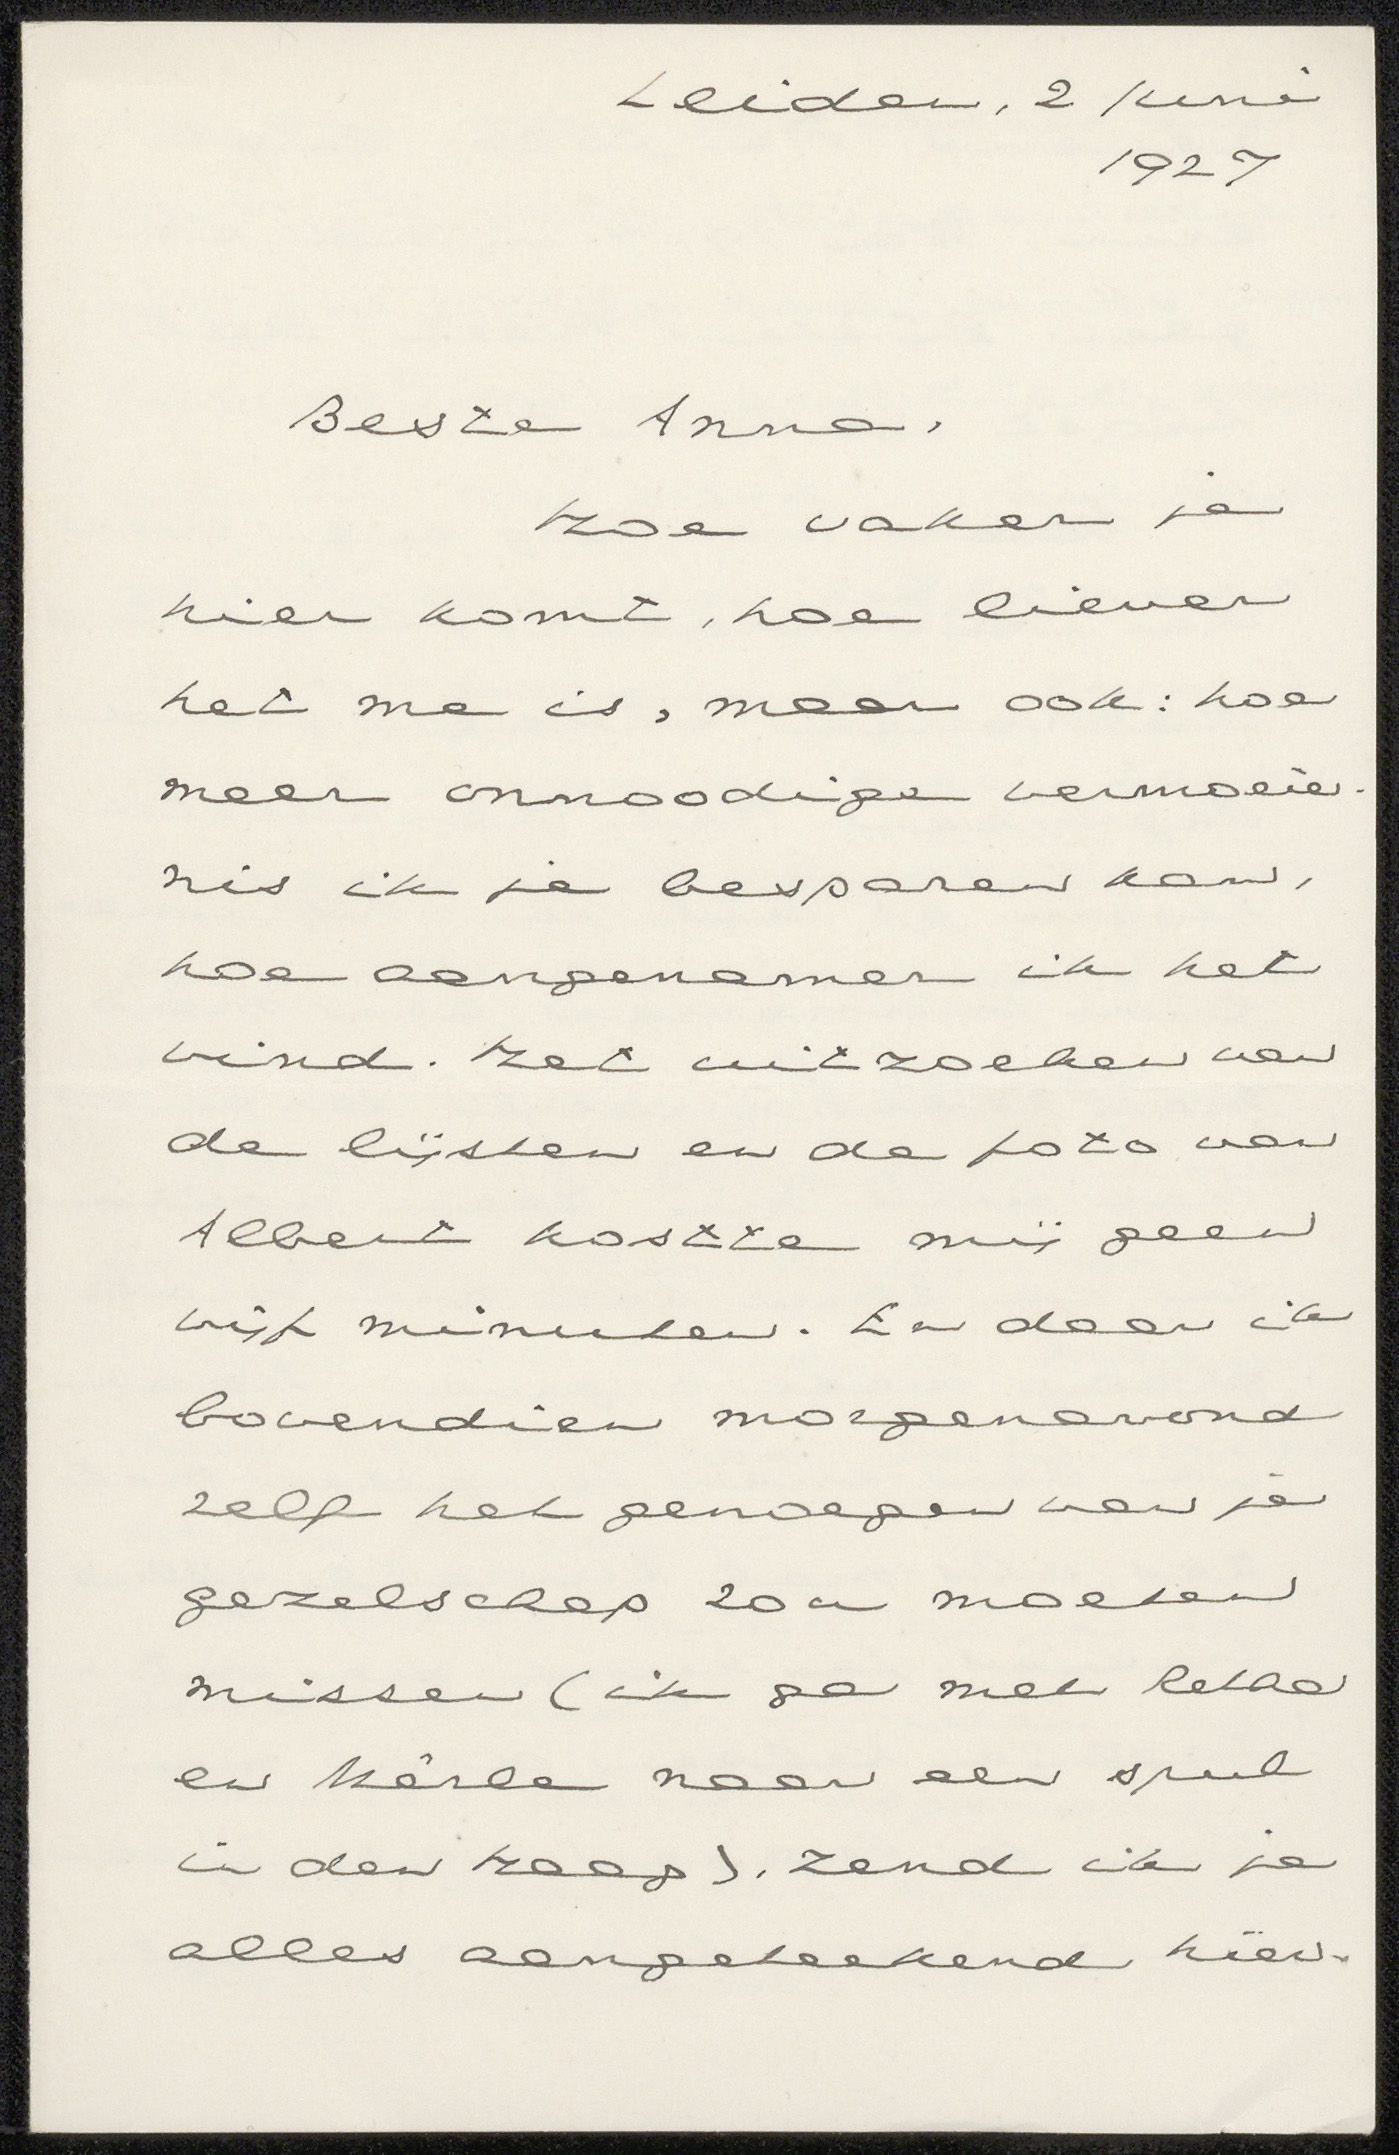 Leiden, 2 Juni
1927
Beste Anna,
Hoe vaker je
hier komt, hoe liever
het me is, maar ook: hoe
meer onnoodige vermoeie-
nis ik je besparen kan,
hoe aangenamer ik het
vind. Het uitzoeken van
de lijsten en de foto van
Albert kostte mij geen
vijf minuten. En daar ik
bovendien morgenavond
zelf het genoegen van je
gezelschap zou moeten
missen (ik ga met
en naar een spul
in den Haag), zend ik je
alles aangeteekend hier-